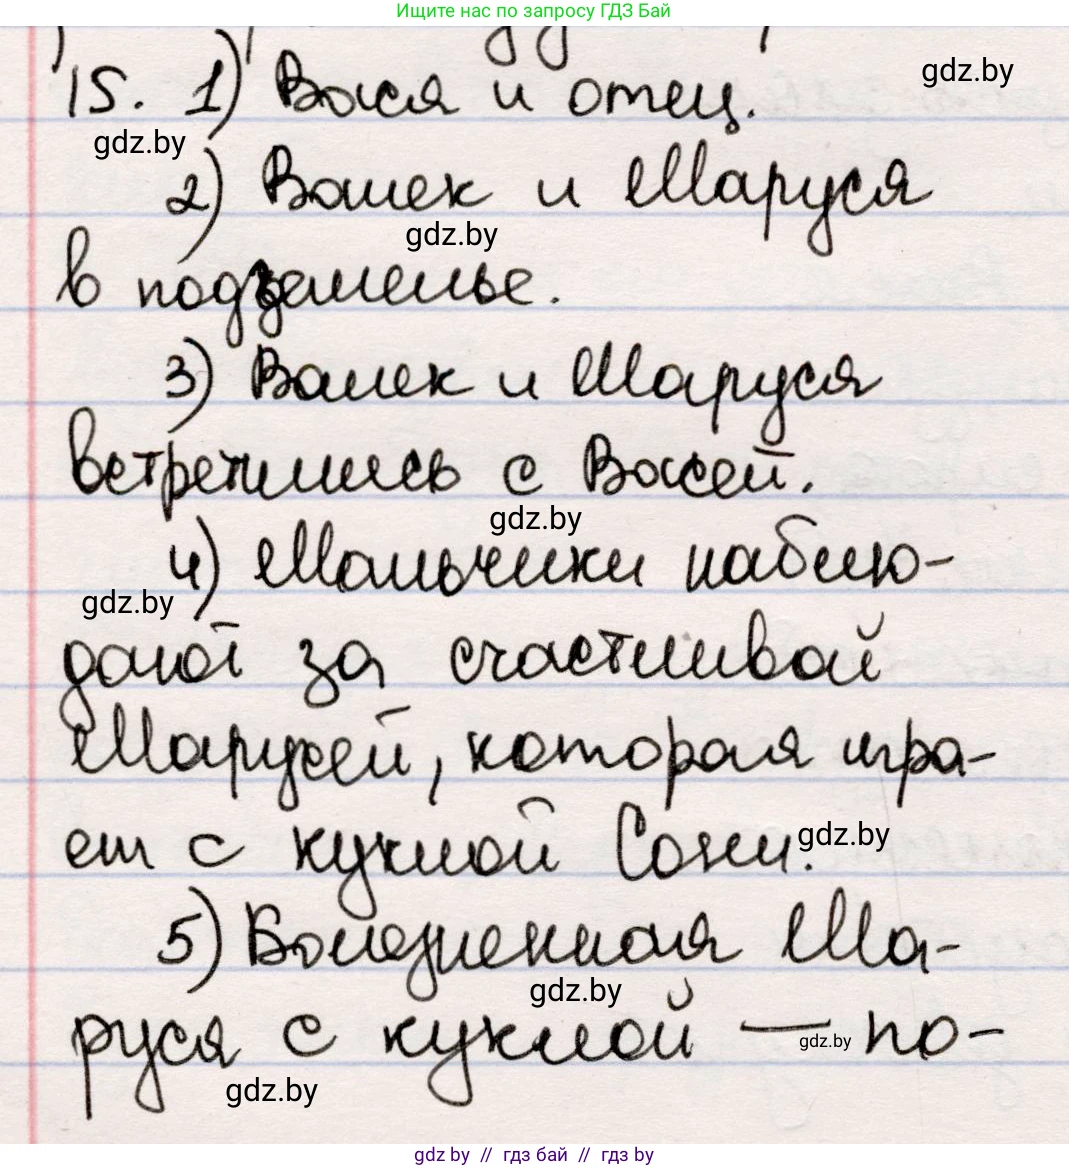 Ищите нас по запросу ГДЗ Бай
15. 1) Вася и отец.
gdz.by
gdz.by
2) Валек и Маруся
gdz.by
в подземелье.
3) Валек и Маруся
встретились с Васей.
gdz.by
4) Мальчики наблю-
gdz.by
дают за счастливой
Марусей, которая игра-
ет с куклой Сони.
gdz.by
5) Болезненная Ма-
gdz.by
руся с куклой — по-
gdz.by
gdz.by
gdz by // гдз бай // гдз by